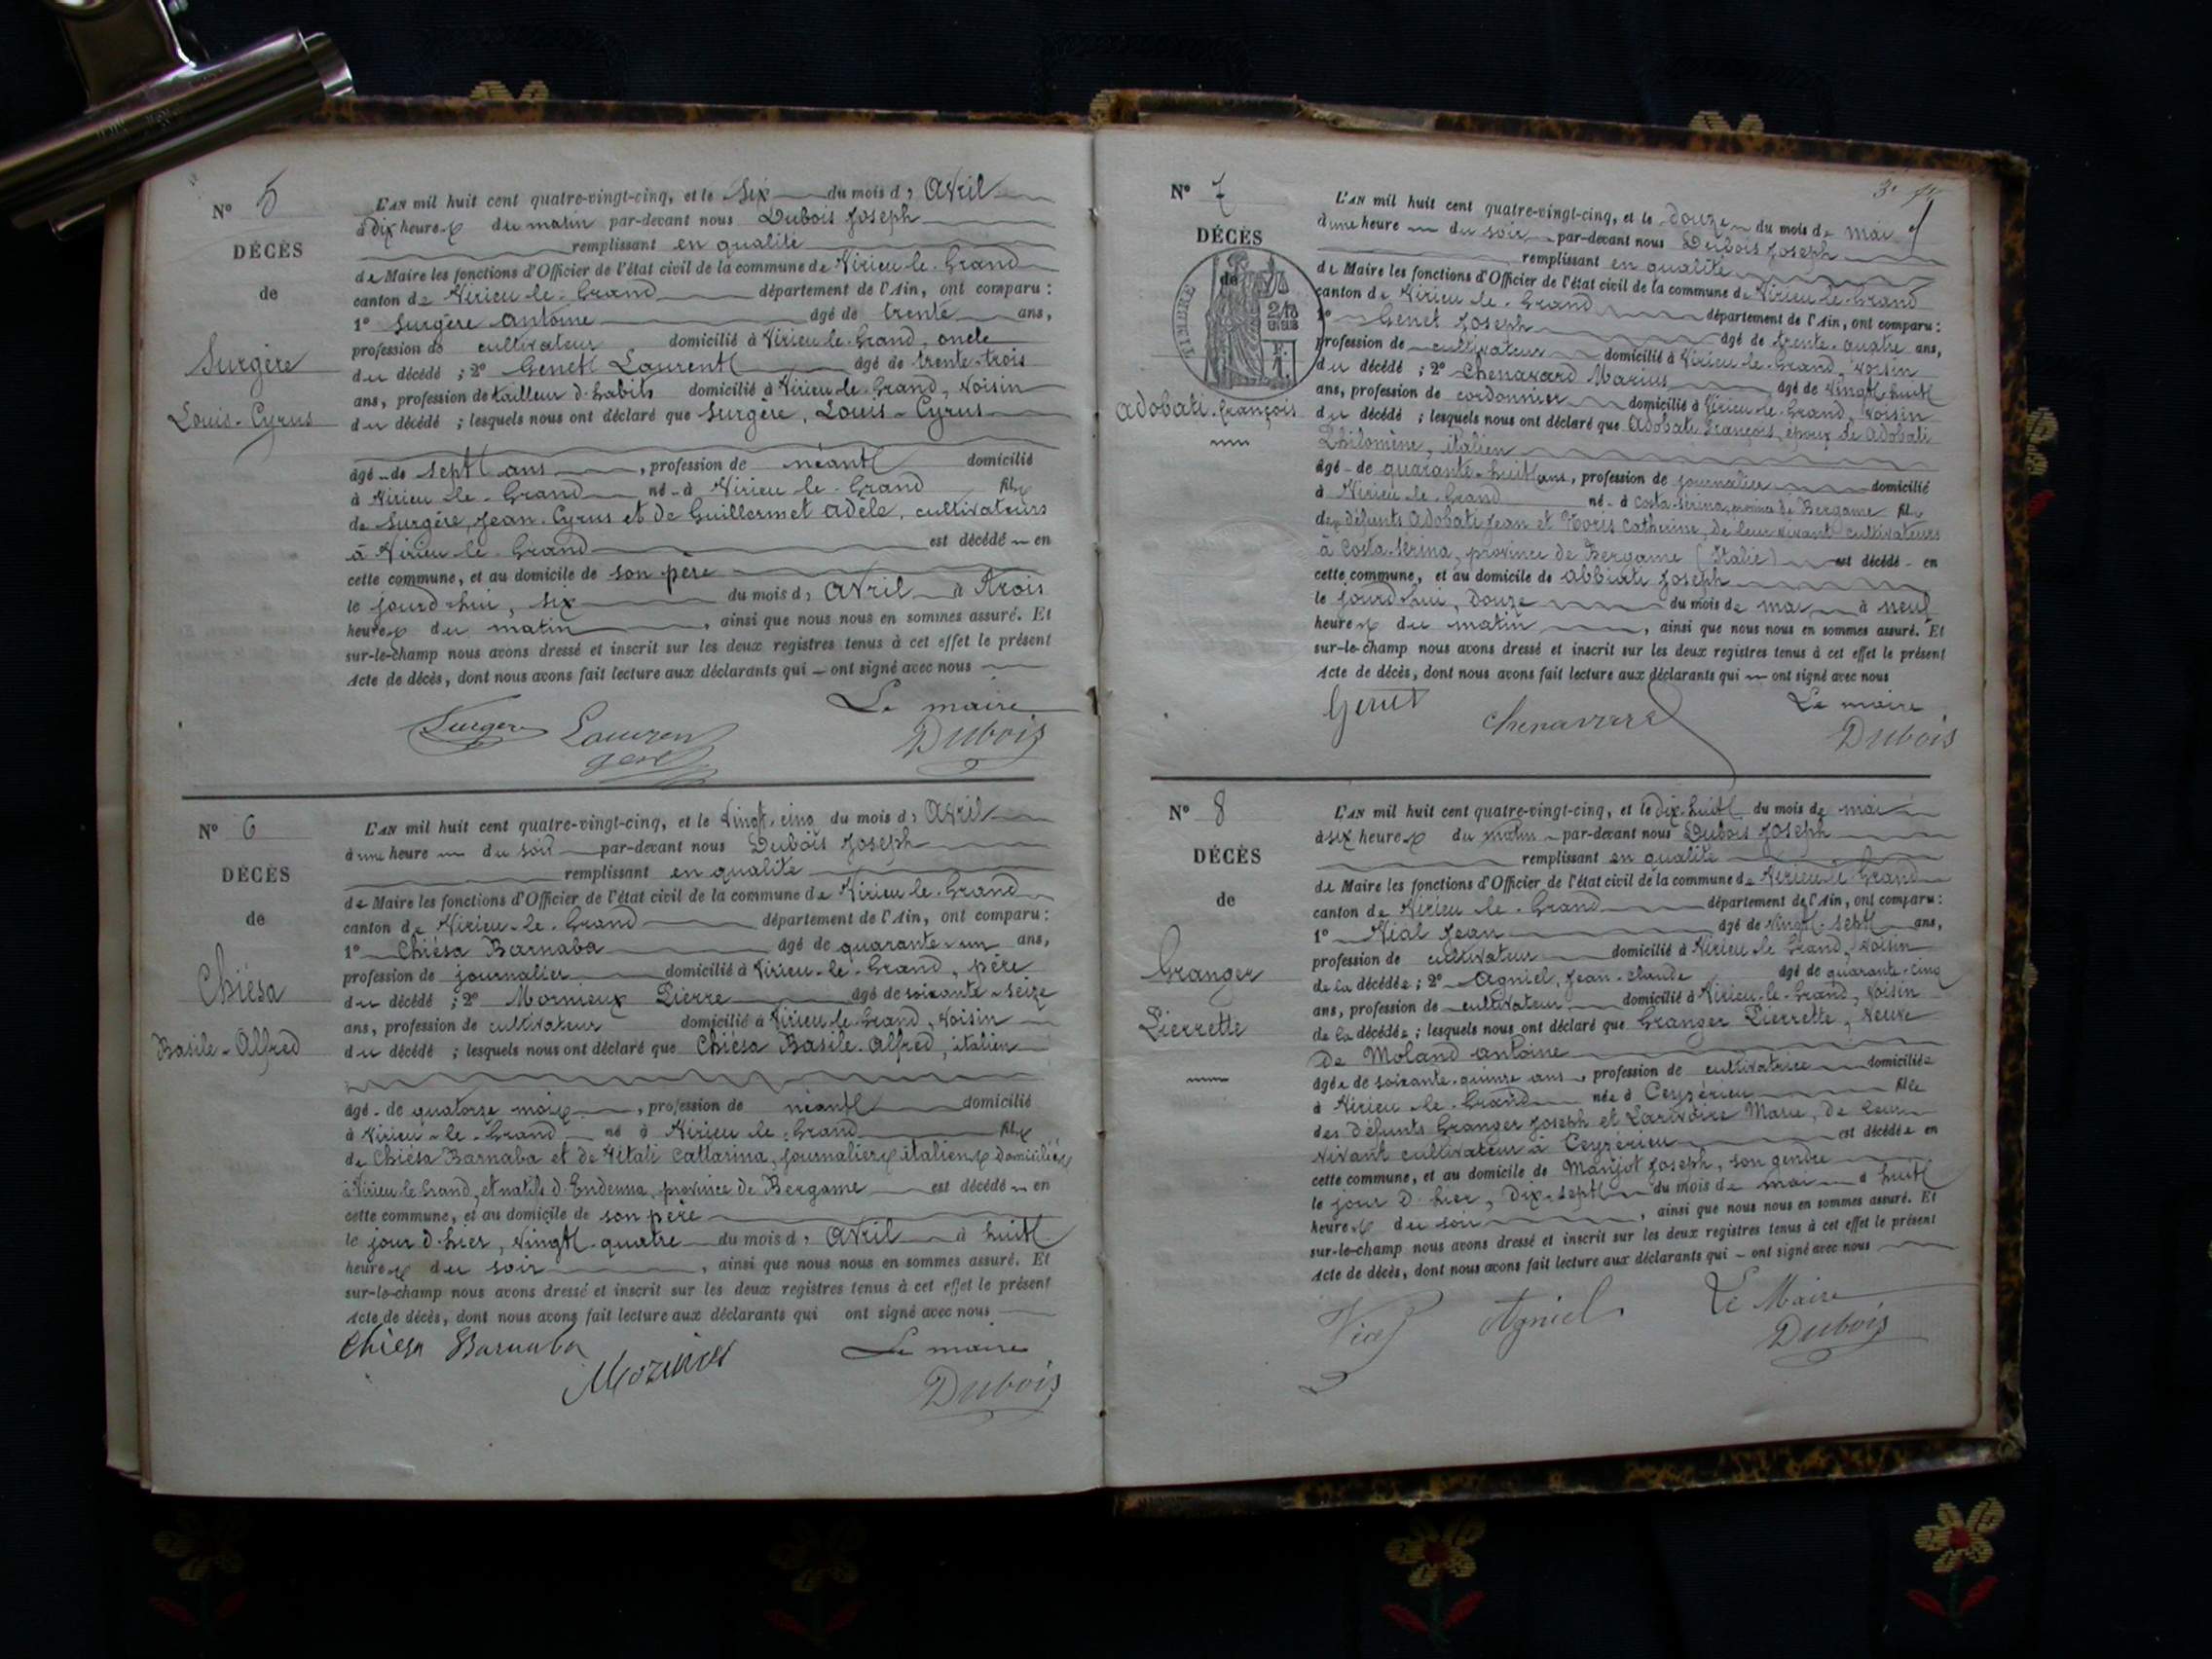 N° 5
DÉCÈS
de
Surgère
Louis-Cyrus
L'AN mil huit cent quatre-vingt-cinq, et le Six du mois d'Avril
à dix heures du matin par-devant nous Dubois Joseph
remplissant en qualité
de Maire les fonctions d'Officier de l'état civil de la commune de Virieu-le-Grand
canton de Virieu-le-Grand département de l'Ain, ont comparu :
1° Surgère Antoine âgé de trente ans,
profession de cultivateur domicilié à Virieu-le-Grand, oncle
du décédé ; 2° Genet Laurent âgé de trente-trois
ans, profession de tailleur d'habits domicilié à Virieu-le-Grand, voisin
du décédé ; lesquels nous ont déclaré que Surgère, Louis-Cyrus
âgé de sept ans, profession de néant domicilié
à Virieu-le-Grand né à Virieu-le-Grand fils
de Surgère, Jean-Cyrus et de Guillermet Adèle, cultivateurs
à Virieu-le-Grand est décédé en
cette commune, et au domicile de son père
le jourd'hui, six du mois d'Avril à trois
heures du matin, ainsi que nous nous en sommes assuré. Et
sur-le-champ nous avons dressé et inscrit sur les deux registres tenus à cet effet le présent
Acte de décès, dont nous avons fait lecture aux déclarants qui ont signé avec nous
Le maire
Surgère Lauren Dubois
N° 6
DÉCÈS
de
Chiésa
Basile-Alfred
L'AN mil huit cent quatre-vingt-cinq, et le vingt-cinq du mois d'Avril
à une heure du soir par-devant nous Dubois Joseph
remplissant en qualité
de Maire les fonctions d'Officier de l'état civil de la commune de Virieu-le-Grand
canton de Virieu-le-Grand département de l'Ain, ont comparu :
1° Chiésa Barnaba âgé de quarante-un ans,
profession de journalier domicilié à Virieu-le-Grand, père
du décédé ; 2° Mornieux Pierre âgé de soixante-seize
ans, profession de cultivateur domicilié à Virieu-le-Grand, voisin
du décédé ; lesquels nous ont déclaré que Chiésa Basile-Alfred, italien
âgé de quatorze mois, profession de néant domicilié
à Virieu-le-Grand né à Virieu-le-Grand fils
de Chiésa Barnaba et de Vitali Cattarina, journaliers italiens domiciliés
à Virieu-le-Grand, et natifs d'Endenna, province de Bergame est décédé en
cette commune, et au domicile de son père
le jour d'hier, vingt-quatre du mois d'Avril à huit
heures du soir, ainsi que nous nous en sommes assuré. Et
sur-le-champ nous avons dressé et inscrit sur les deux registres tenus à cet effet le présent
Acte de décès, dont nous avons fait lecture aux déclarants qui ont signé avec nous
Chiesa Barnaba Le maire
Dubois
N° 7
DÉCÈS
de
TIMBRE
Adobati François
L'AN mil huit cent quatre-vingt-cinq, et le douze du mois de mai
à une heure du soir par-devant nous Dubois Joseph
remplissant en qualité
de Maire les fonctions d'Officier de l'état civil de la commune de Virieu-le-Grand
canton de Virieu-le-Grand département de l'Ain, ont comparu :
1° Genet Joseph âgé de trente-quatre ans,
profession de cultivateur domicilié à Virieu-le-Grand, voisin
du décédé ; 2° Chenavard Marius âgé de vingt-huit
ans, profession de cordonnier domicilié à Virieu-le-Grand, voisin
du décédé ; lesquels nous ont déclaré que Adobati François, époux de Adobati
Philomène, italien
âgé de quarante-huit ans, profession de journalier domicilié
à Virieu-le-Grand né à Costa-Serina, province de Bergame fils
des défunts Adobati Jean et Catherine, de leur vivant cultivateurs
à Costa-Serina, province de Bergame (Italie) est décédé en
cette commune, et au domicile de Abbiati Joseph
le jourd'hui, douze du mois de mai à neuf
heures du matin, ainsi que nous nous en sommes assuré. Et
sur-le-champ nous avons dressé et inscrit sur les deux registres tenus à cet effet le présent
Acte de décès, dont nous avons fait lecture aux déclarants qui ont signé avec nous
Genet Chenavard Le maire
Dubois
N° 8
DÉCÈS
de
Granger
Pierrette
L'AN mil huit cent quatre-vingt-cinq, et le dix-huit du mois de mai
à six heures du matin par-devant nous Dubois Joseph
remplissant en qualité
de Maire les fonctions d'Officier de l'état civil de la commune de Virieu-le-Grand
canton de Virieu-le-Grand département de l'Ain, ont comparu :
1° Vial Jean âgé de vingt-sept ans,
profession de cultivateur domicilié à Virieu-le-Grand, voisin
de la décédée ; 2° Agniel, Jean-Claude âgé de quarante-cinq
ans, profession de cultivateur domicilié à Virieu-le-Grand, voisin
de la décédée ; lesquels nous ont déclaré que Granger Pierrette, veuve
de Moland Antoine
âgée de soixante-quinze ans, profession de cultivatrice domiciliée
à Virieu-le-Grand née à Ceyzérieu fille
des défunts Granger Joseph et Larivoire Marie, de leur
vivant cultivateur à Ceyzérieu est décédée en
cette commune, et au domicile de Manjot Joseph, son gendre
le jour d'hier, dix-sept du mois de mai à huit
heures du soir, ainsi que nous nous en sommes assuré. Et
sur-le-champ nous avons dressé et inscrit sur les deux registres tenus à cet effet le présent
Acte de décès, dont nous avons fait lecture aux déclarants qui ont signé avec nous
Vial Agniel Le Maire
Dubois